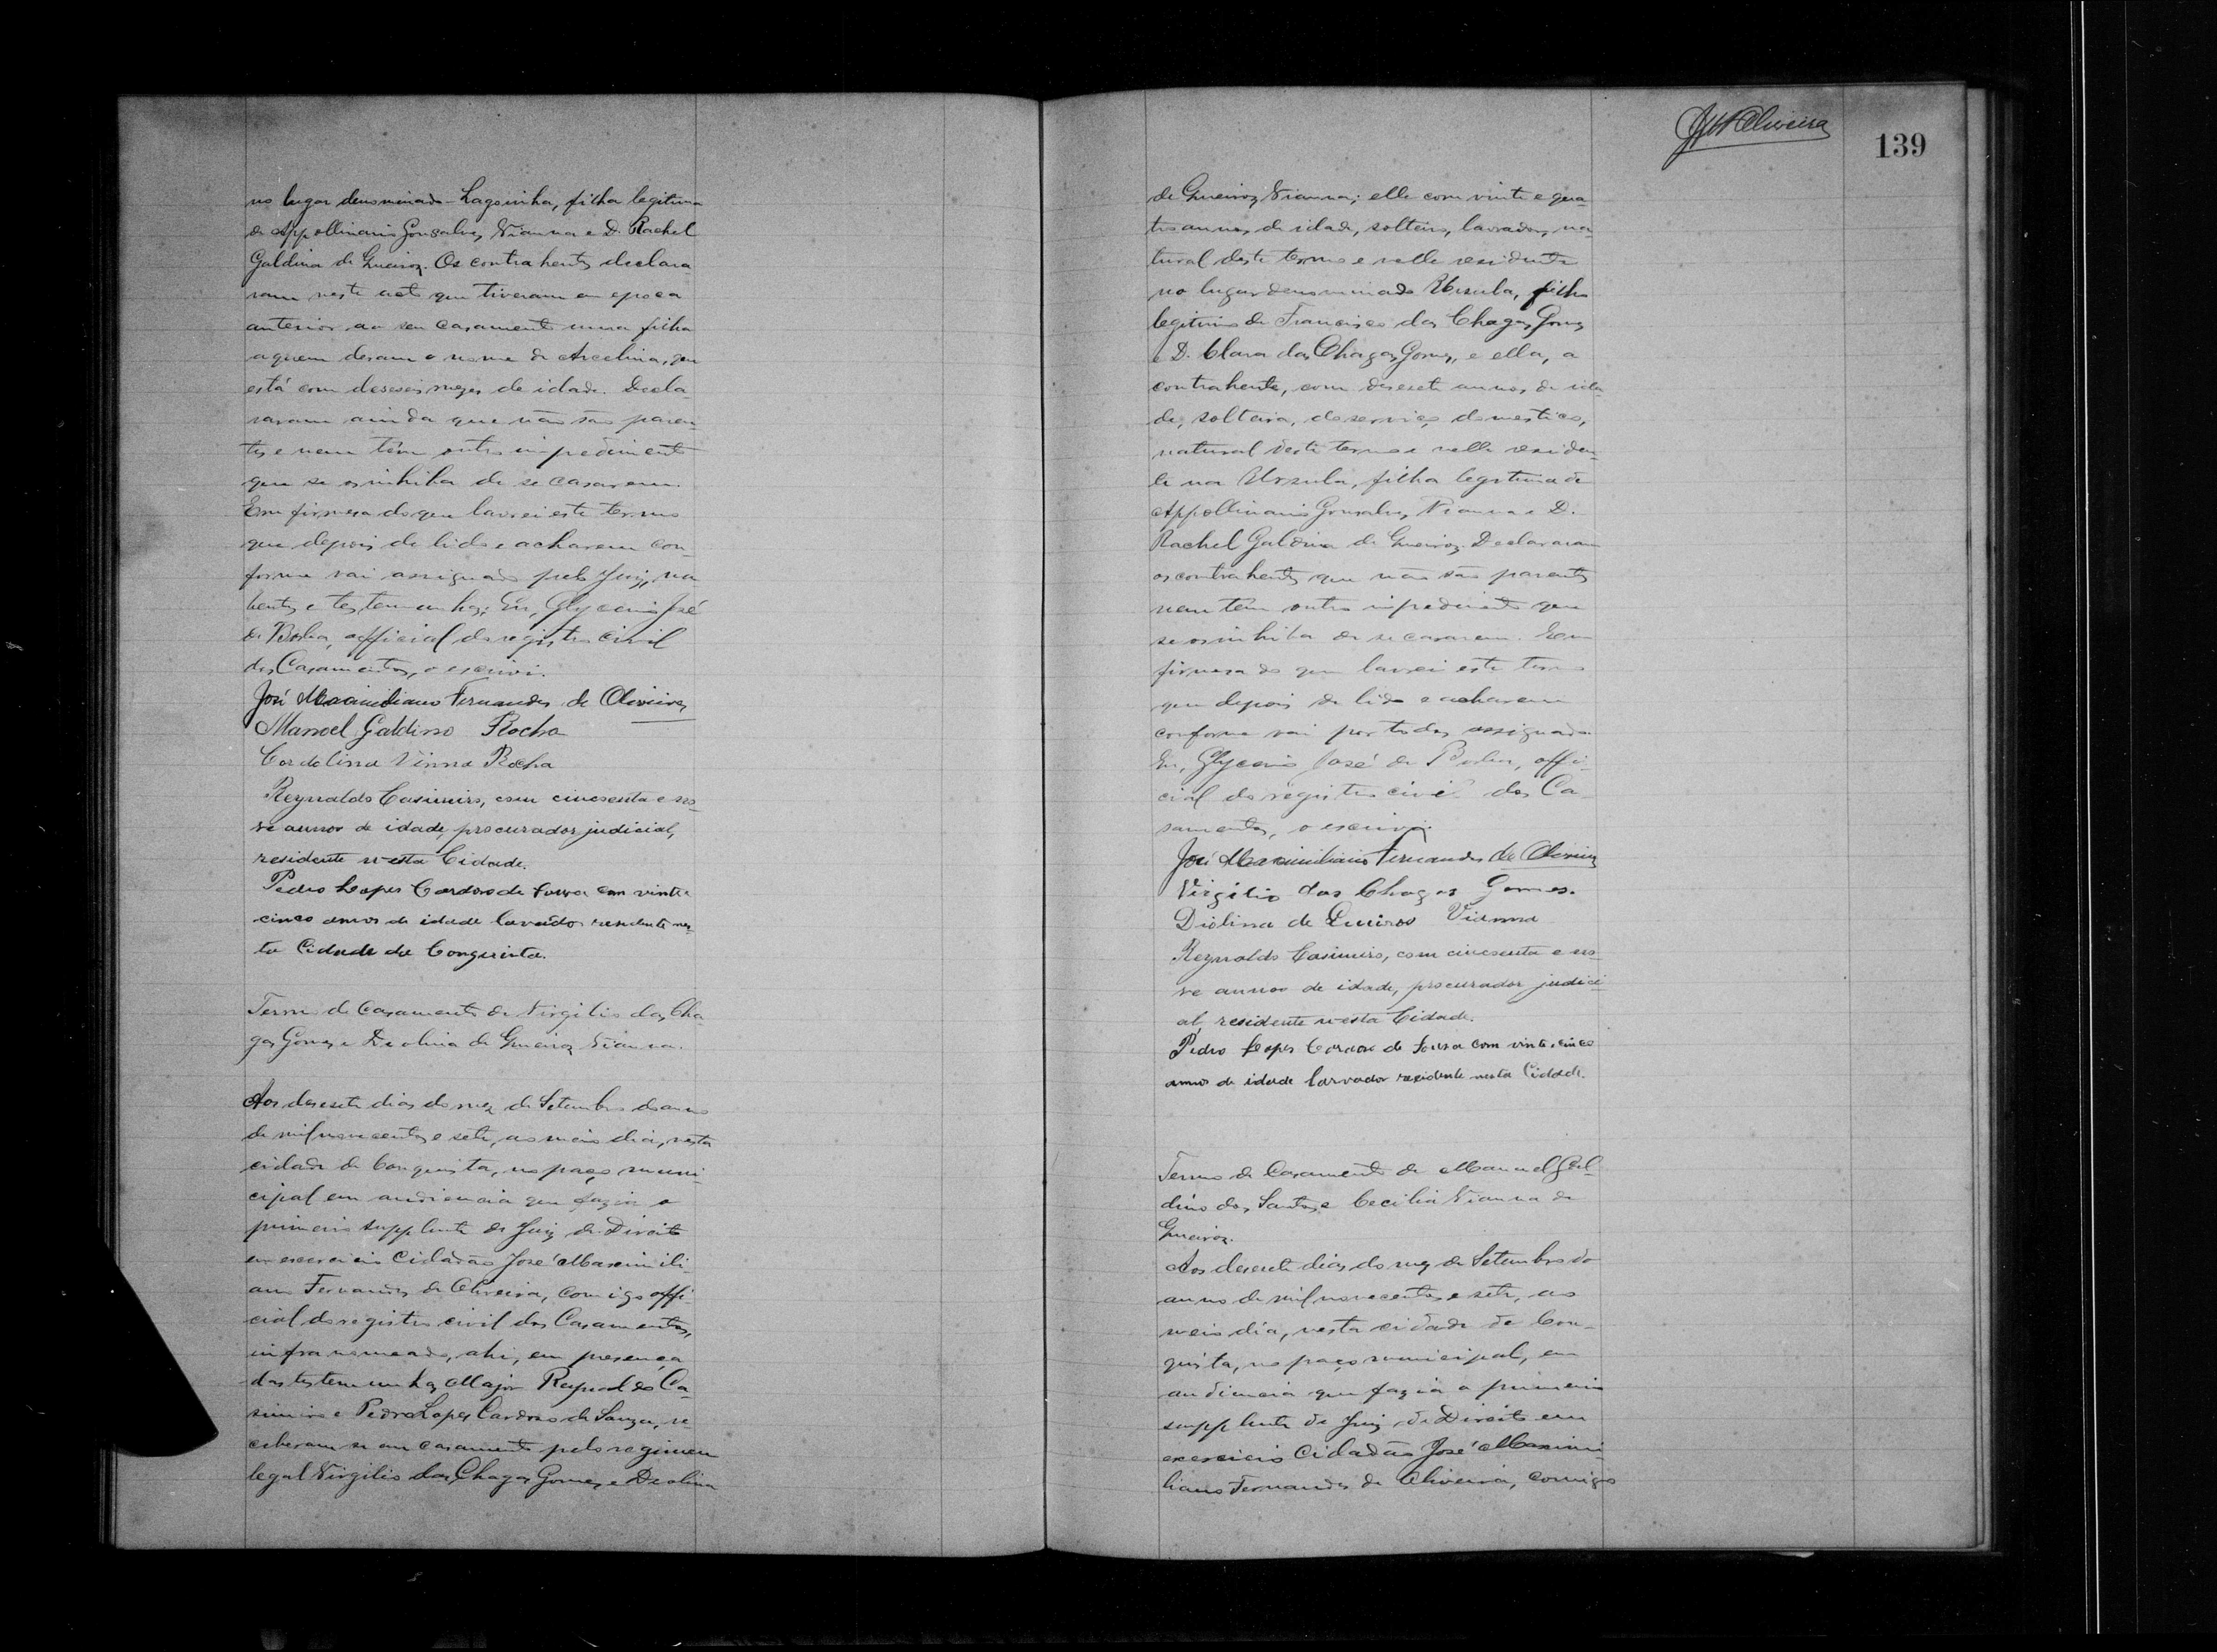 no lugar denominado Lagoinha, filha legitima
de Appollinario Gonsalves Vianna e D. Rachel
Galdina de Queiroz. Os contrahentes declara
ram neste acto que tiveram em epoca
anterior ao seu casamento uma filha
a quem deram o nome de Arcelina, que
está com deseseis mezes de idade. Decla-
raram ainda que não são paren-
tes e nem têm outro impedimento
que se os inhiba de se casarem.
Em firmesa do que lavrei este termo
que depois de lido e acharem con-
forme vai assignado pelo Juiz, nu
bentes e testemunhas. Eu, Glycerio José
da Rocha, official do registro civil
dos Casamentos, o escrivi.
José Maximiliano Fernandes de Oliveira
Manoel Galdino Rocha
Cordolina Vianna Rocha
Reynaldo Casimiro, com cincoenta e no-
ve annos de idade, procurador judicial,
residente nesta Cidade.
Pedro Lopes Cardoso de Souza com vinte
cinco annos de idade lavrador residente nes-
ta Cidade da Conquista.
Termo de Casamento de Virgilio das Cha
gas Gomes e Deolina de Queiroz Vianna.
Aos desesete dias do mez de Setembro do anno
de mil novecentos e sete, ao meio dia, nesta
cidade de Conquista, no paço muni-
cipal em audiencia que fazia o
primeiro supplente do Juiz de Direito
em exercicio Cidadão José Maximili-
ano Fernandes de Oliveira, comigo offi-
cial do registro civil dos Casamentos,
infra nomeado, ahi, em presença
das testemunhas Major Reynaldo Ca-
simiro e Pedro Lopes Cardoso de Souza, re
ceberam-se em casamento pelo regimen
legal Virgilio das Chagas Gomes e Deolina
JMFOliveira
139
de Queiroz Vianna; elle com vinte e qua-
tro annos de idade, solteiro, lavrador, na-
tural deste termo e nelle residente
no lugar denominado Ursula, filho
legitimo de Francisco das Chagas Gomes
e D. Clara das Chagas Gomes, e ella, a
contrahente, com desesete annos de ida-
de, solteira, de serviço domestico,
natural deste termo e nelle residen-
te na Ursula, filha legitima de
Appollinario Gonsalves Vianna e D.
Rachel Galdina de Queiroz. Declararam
os contrahentes que não são parentes
nem têm outro impedimento que
se os inhiba de se casarem. Em
firmesa do que lavrei este termo
que depois de lido e acharem
conforme vai por todos assignado.
Eu, Glycerio José da Rocha, offi-
cial do registro civil dos Ca-
samentos, o escrivi.
José Maximiliano Fernandes de Oliveira
Virgilio das Chagas Gomes.
Diolina de Queiros Vianna
Reynaldo Casimiro, com cincoenta e no-
ve annos de idade, procurador judici-
al, residente nesta Cidade.
Pedro Lopes Cardoso de Souza com vinte, cinco
annos de idade larvador residente nesta Cidade.
Termo de Casamento de Manuel Gal-
dino dos Santos e Cecilia Vianna de
Queiroz.
Aos desesete dias do mez de Setembro do
anno de mil novecentos e sete, ao
meio dia, nesta cidade de Con-
quista, no paço municipal, em
audiencia que fazia o primeiro
supplente do Juiz de Direito em
exercicio Cidadão José Maximi-
liano Fernandes de Oliveira, comigo